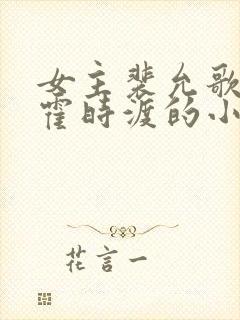 女主裴允歌
霍时渡的小
花言一